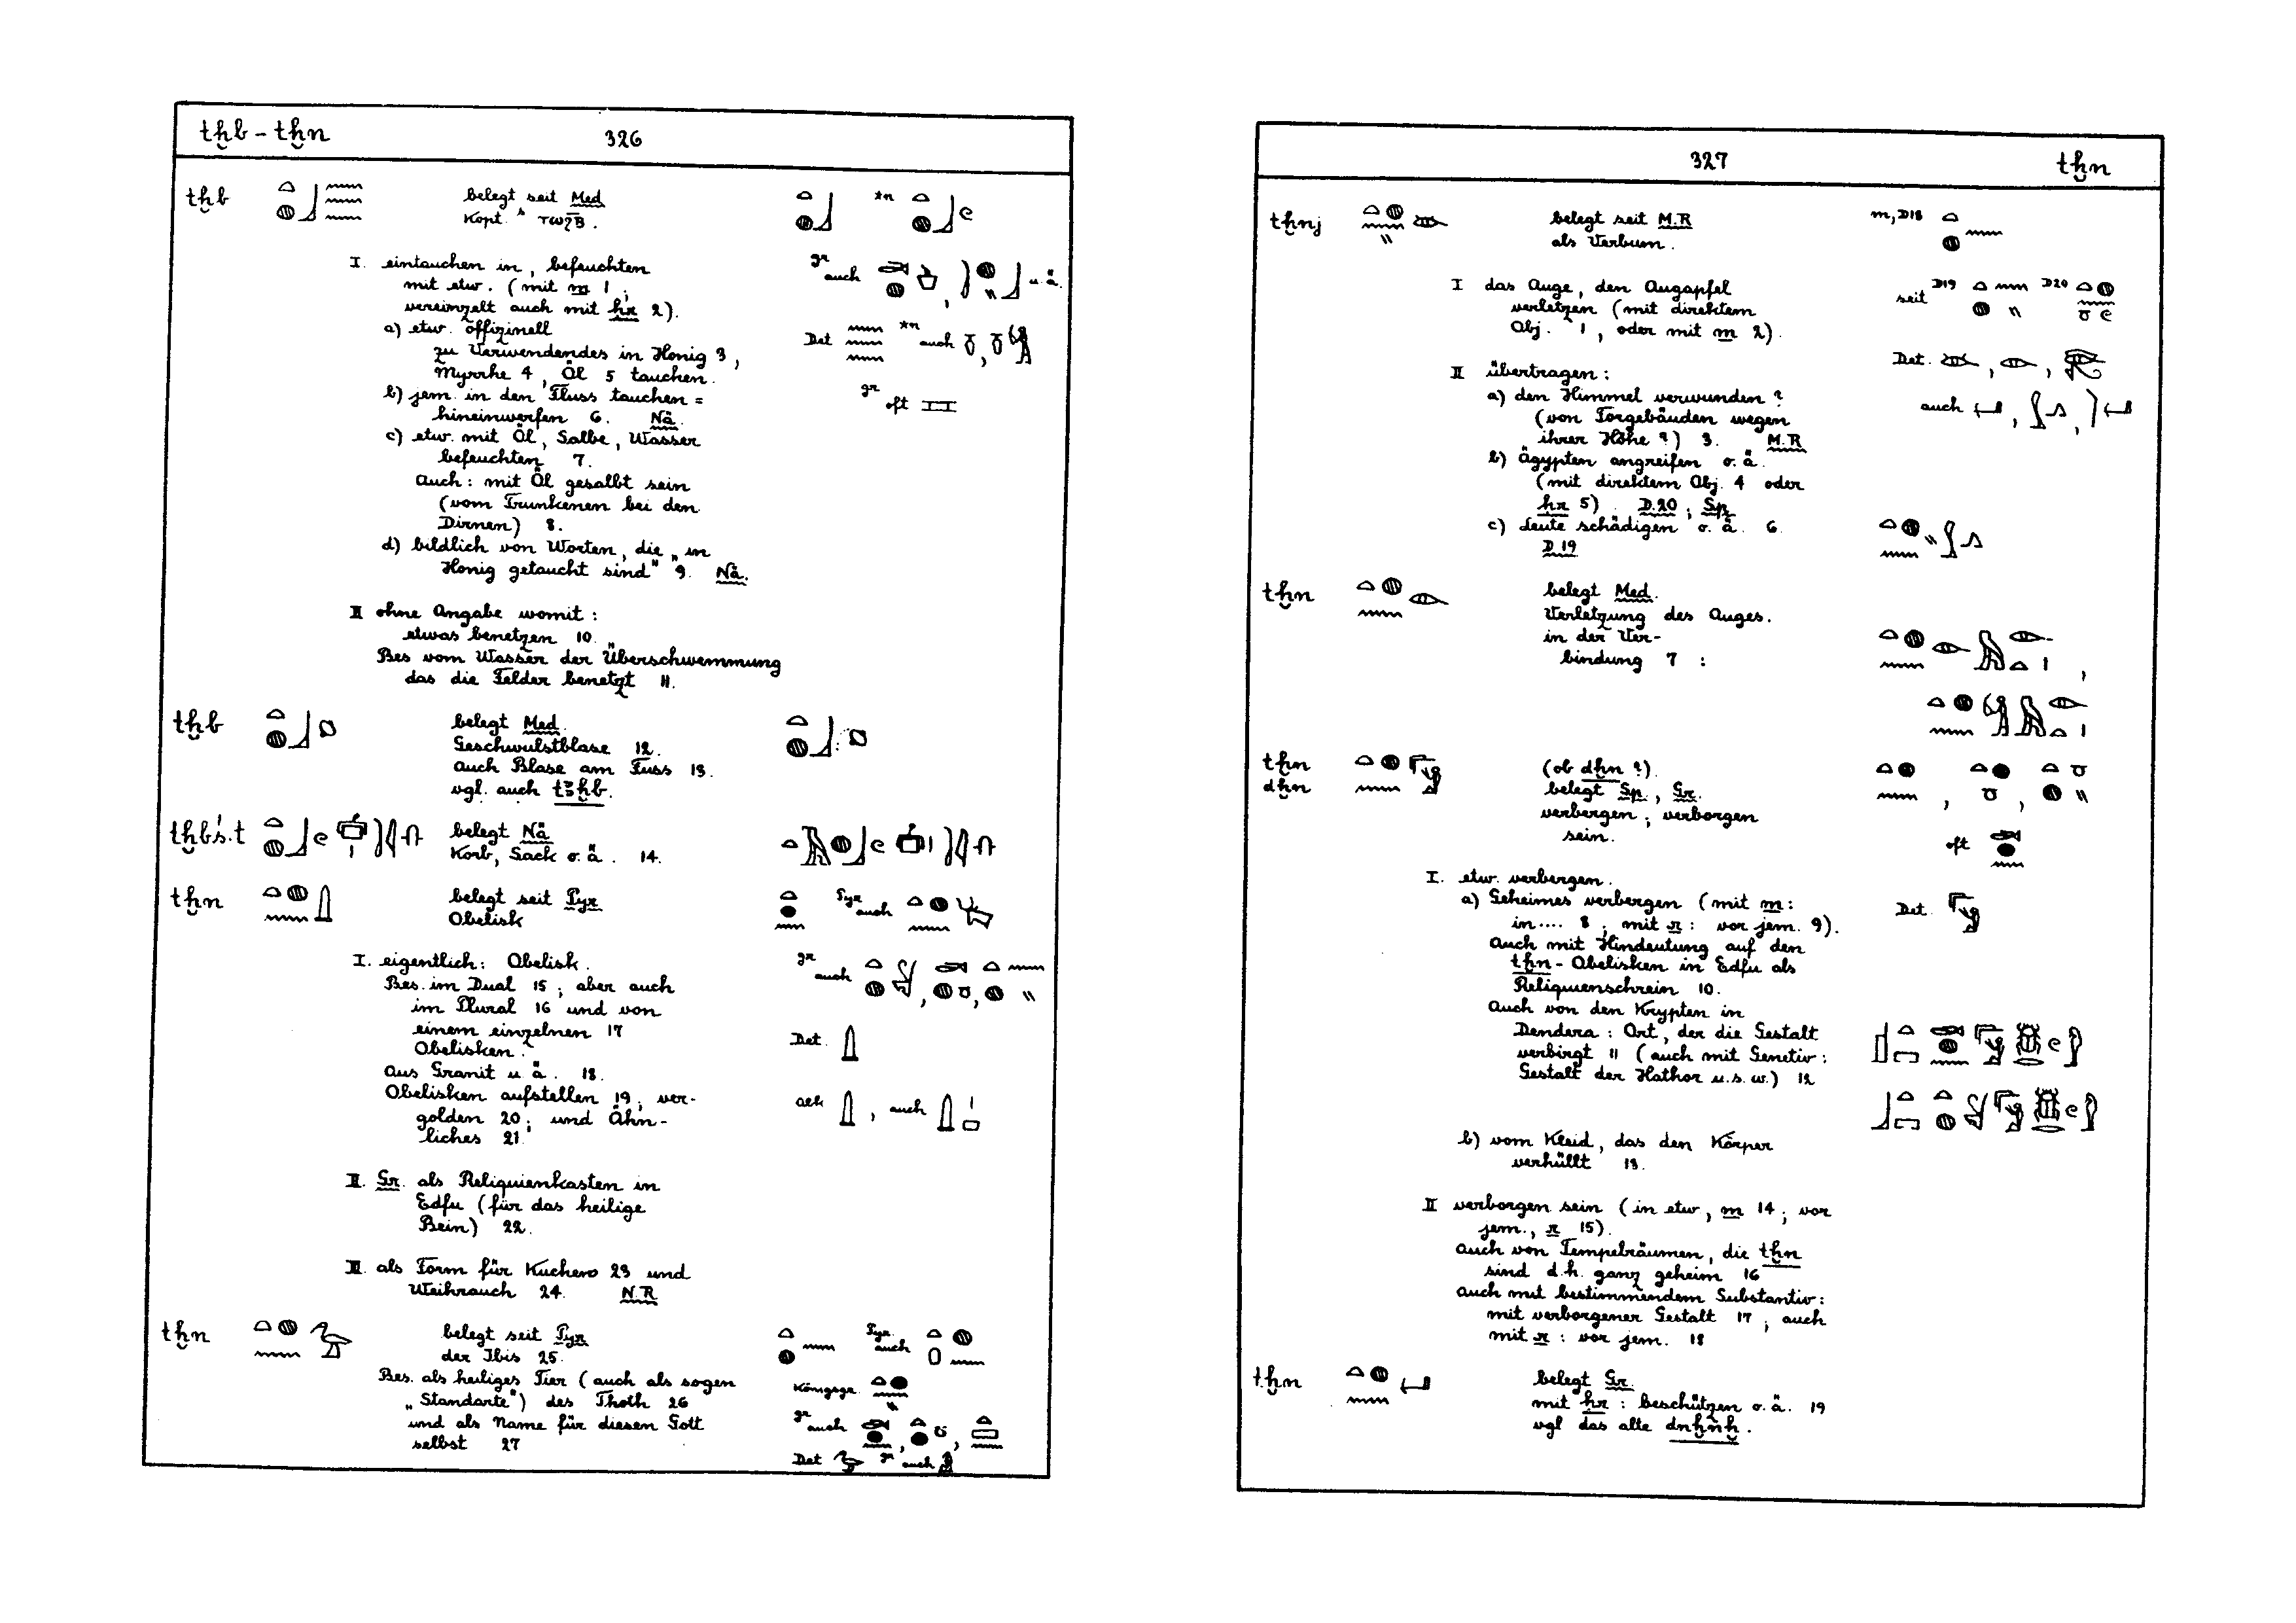 tḫb - tḫn 326
tḫb belegt seit Med
Kopt. ᵇ ⲧⲱϩⲃ.
I. eintauchen in, befeuchten
mit etw. (mit m 1;
vereinzelt auch mit ḥr 2).
a) etw. offizinell
zu Verwendendes in Honig 3,
Myrrhe 4, Öl 5 tauchen.
b) jem. in den Fluss tauchen =
hineinwerfen 6. Nä.
c) etw. mit Öl, Salbe, Wasser
befeuchten 7.
Auch: mit Öl gesalbt sein
(vom Trunkenen bei den
Dirnen) 8.
d) bildlich von Worten, die „in
Honig getaucht sind" 9. Nä.
gr auch , u. ä.
Det auch ,
gr oft
II ohne Angabe womit:
etwas benetzen 10.
Bes vom Wasser der Überschwemmung
das die Felder benetzt 11.
tḫb belegt Med.
Geschwulstblase 12.
auch Blase am Fuss 13.
vgl. auch tꜣḫb.
tḫbś.t belegt Nä
Korb, Sack o. ä. 14.
tḫn belegt seit Pyr
Obelisk
Pyr auch
I. eigentlich: Obelisk.
Bes. im Dual 15; aber auch
im Plural 16 und von
einem einzelnen 17
Obelisken.
Aus Granit u. ä. 18.
Obelisken aufstellen 19, ver-
golden 20; und Ähn-
liches 21
gr auch , ,
Det.
, auch
II. Gr. als Reliquienkasten in
Edfu (für das heilige
Bein) 22.
III als Form für Kuchen 23 und
Weihrauch 24. N.R
tḫn belegt seit Pyr
der Ibis 25.
Bes. als heiliges Tier (auch als sogen
„Standarte") des Thoth 26
und als Name für diesen Gott
selbst 27
Pyr. auch
Königsgr.
gr auch , ,
Det gr auch
327 tḫn
tḫnj belegt seit M.R
als Verbum.
m, D18
I das Auge, den Augapfel
verletzen (mit direktem
Obj. 1, oder mit m 2).
seit D19 D20
II übertragen:
a) den Himmel verwunden?
(von Torgebäuden wegen
ihrer Höhe?) 3. M.R
b) Ägypten angreifen o. ä.
(mit direktem Obj. 4 oder
ḥr 5). D.20; Sp
c) Leute schädigen o. ä. 6.
D 19
Det. , ,
auch , ,
tḫn belegt Med.
Verletzung des Auges.
in der Ver-
bindung 7 :
tḫn
dḫn
(ob dḫn?).
belegt Sp., Gr.
verbergen; verborgen
sein.
oft
I. etw. verbergen.
a) Geheimes verbergen (mit m:
in .... 8; mit r: vor jem. 9).
Auch mit Hindeutung auf den
tḫn-Obelisken in Edfu als
Reliquienschrein 10.
Auch von den Krypten in
Dendera: Ort, der die Gestalt
verbirgt 11 (auch mit Genetiv:
Gestalt der Hathor u.s.w.) 12
Det.
b) vom Kleid, das den Körper
verhüllt 13.
II verborgen sein (in etw., m 14; vor
jem., r 15).
Auch von Tempelräumen, die tḫn
sind d.h. ganz geheim 16
Auch mit bestimmendem Substantiv:
mit verborgener Gestalt 17; auch
mit r: vor jem. 18
tḫn belegt Gr.
mit ḥr: beschützen o. ä. 19
vgl das alte dnḥnḥ.